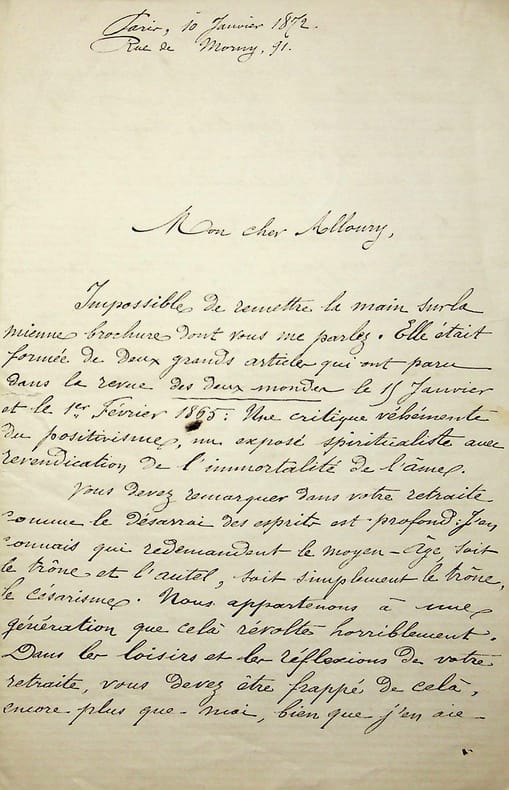 Paris, 10 Janvier 1872.
Rue de Morny, 91.
Mon cher Alloury,
Impossible de remettre la main sur la
mienne brochure dont vous me parlez. Elle était
formée de deux grands articles qui ont paru
dans la revue des deux mondes le 15 Janvier
et le 1er Février 1865: Une critique véhémente
du positivisme, un exposé spiritualiste avec
revendication de l'immortalité de l'âme.
Vous devez remarquer dans votre retraite
comme le désarroi des esprits est profond: J'en
connais qui redemandent le moyen-Âge, soit
le trône et l'autel, soit simplement le trône,
le cesarisme. Nous appartenons à une
génération que celà révolte horriblement.
Dans les loisirs et les réflexions de votre
retraite, vous devez être frappé de celà,
encore plus que moi, bien que j'en aie